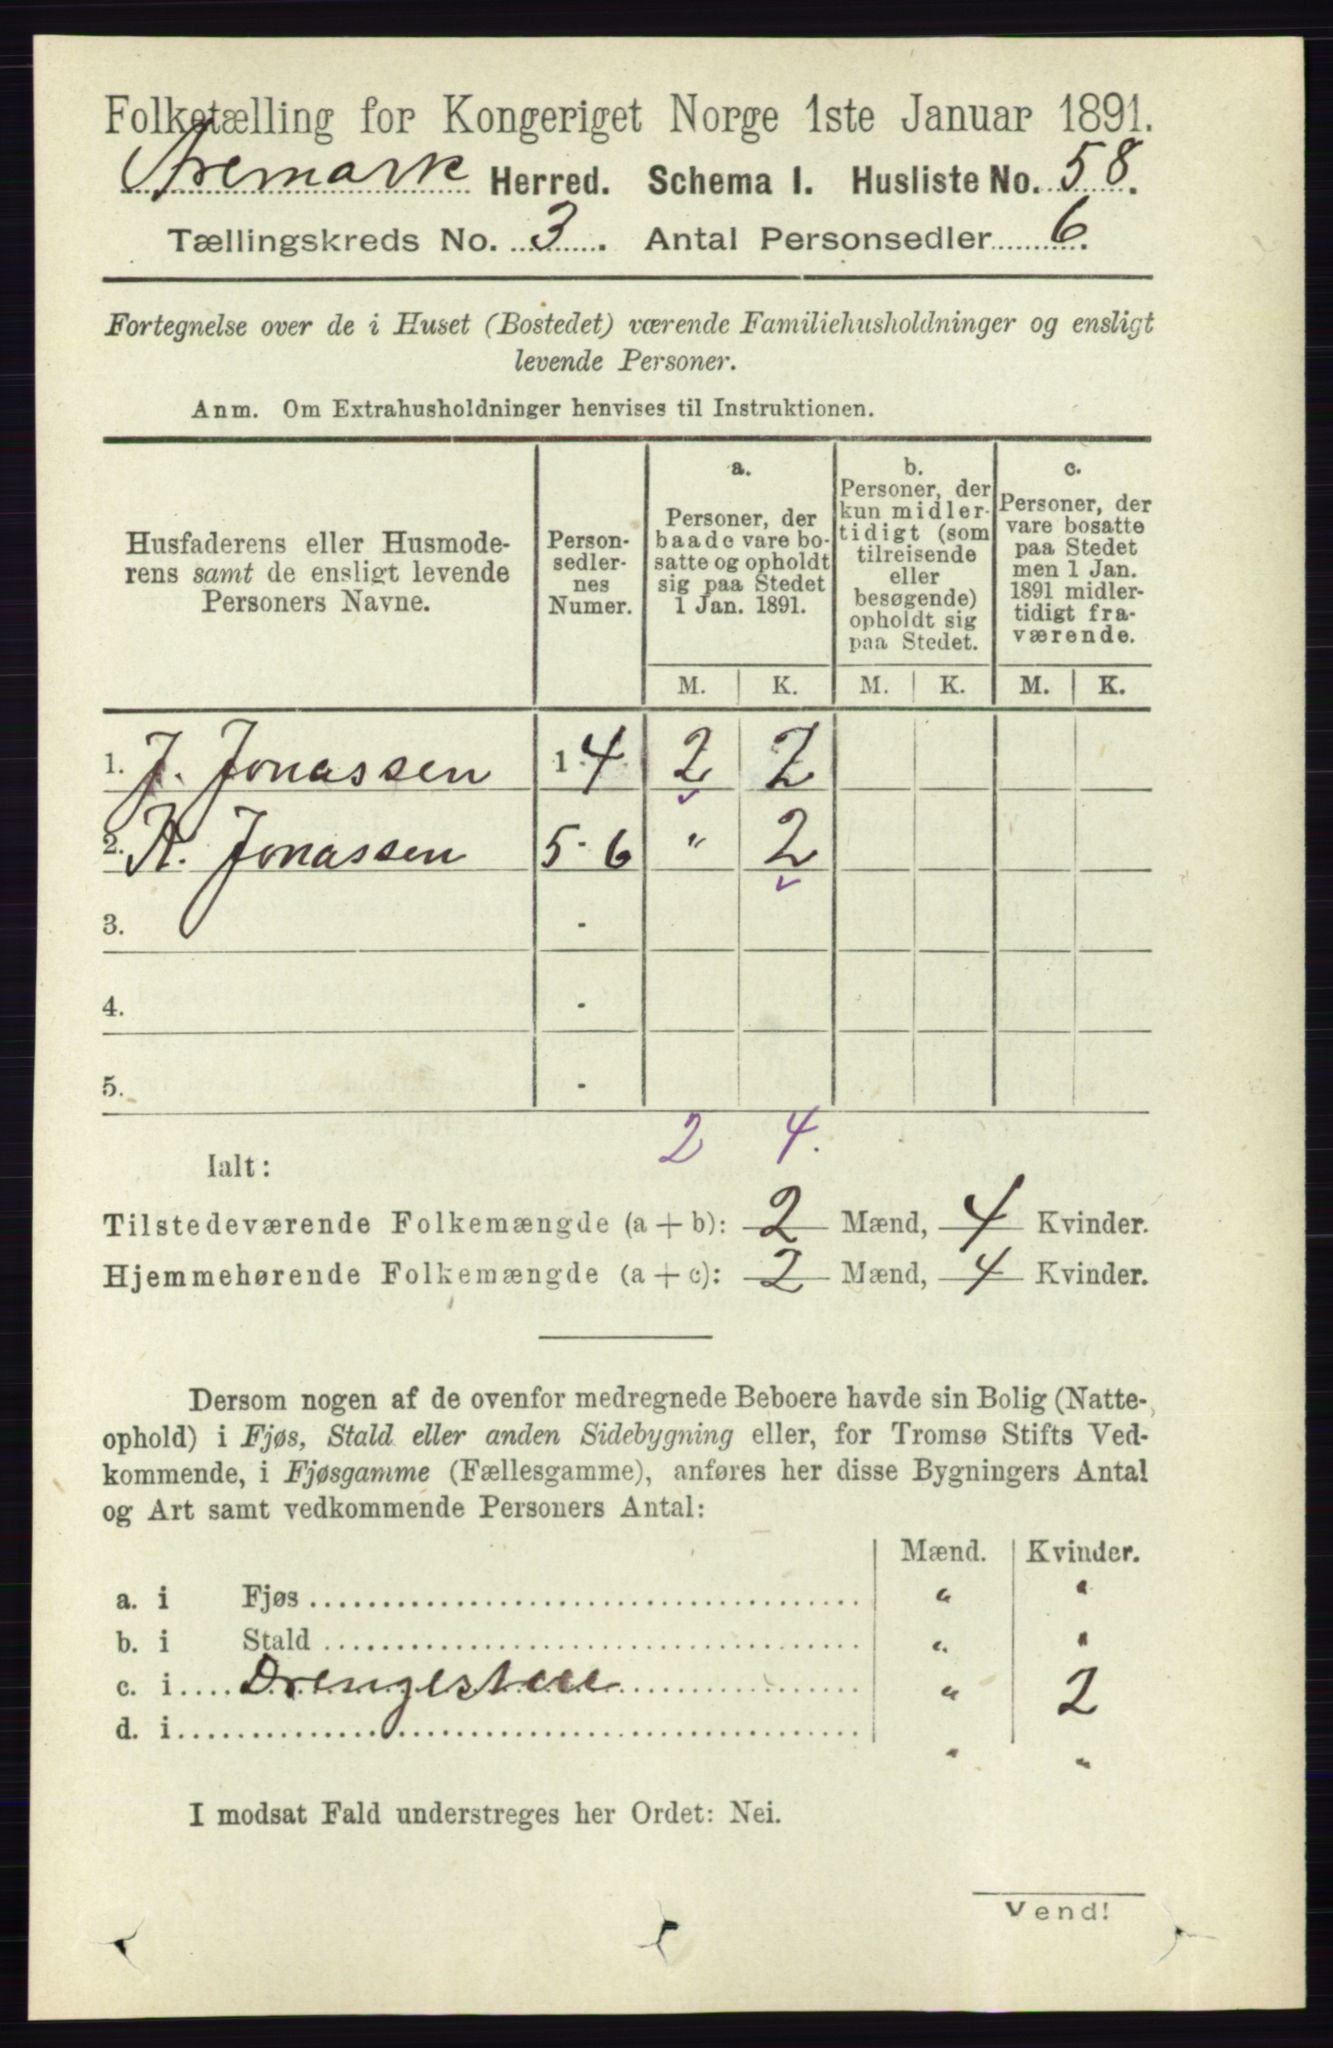 Folketælling for Kongeriget Norge 1ste Januar 1891.
Aremark Herred. Schema I. Husliste No. 58.
Tællingskreds No. 3. Antal Personsedler 6.
Fortegnelse over de i Huset (Bostedet) værende Familiehusholdninger og ensligt
levende Personer.
Anm. Om Extrahusholdninger henvises til Instruktionen.
Husfaderens eller Husmode-
rens samt de ensligt levende
Personers Navne.
Person-
sedler-
nes
Numer.
a.
Personer, der
baade vare bo-
satte og opholdt
sig paa Stedet
1 Jan. 1891.
b.
Personer, der
kun midler-
tidigt (som
tilreisende
eller
besøgende)
opholdt sig
paa Stedet.
c.
Personer, der
vare bosatte
paa Stedet
men 1 Jan.
1891 midler-
tidigt fra-
værende.
M. K. M. K. M. K.
1. J. Jonassen 1-4 2 2
2. K. Jonassen 5-6 " 2
3. -
4. -
5. -
2 4.
Ialt:
Tilstedeværende Folkemængde (a + b): 2 Mænd, 4 Kvinder.
Hjemmehørende Folkemængde (a + c): 2 Mænd, 4 Kvinder.
Dersom nogen af de ovenfor medregnede Beboere havde sin Bolig (Natte-
ophold) i Fjøs, Stald eller anden Sidebygning eller, for Tromsø Stifts Ved-
kommende, i Fjøsgamme (Fællesgamme), anføres her disse Bygningers Antal
og Art samt vedkommende Personers Antal:
Mænd. Kvinder.
a. i Fjøs " "
b. i Stald " "
c. i Drengestue " 2
d. i " "
I modsat Fald understreges her Ordet: Nei.
Vend!